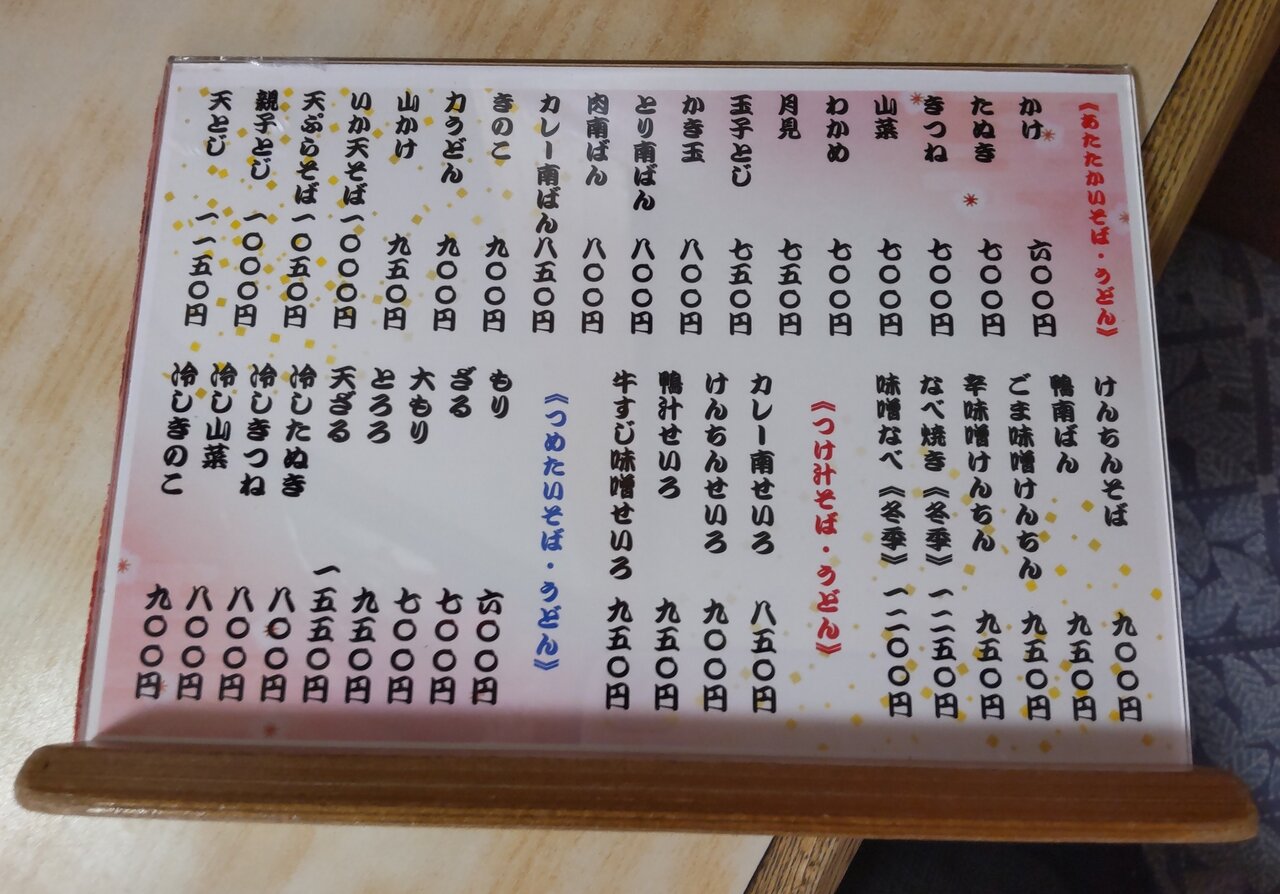 《あたたかいそば・うどん》
かけ 六〇〇円
たぬき 七〇〇円
きつね 七〇〇円
山菜 七〇〇円
わかめ 七〇〇円
月見 七五〇円
玉子とじ 七五〇円
かき玉 八〇〇円
とり南ばん 八〇〇円
肉南ばん 八〇〇円
カレー南ばん 八五〇円
きのこ 九〇〇円
力うどん 九〇〇円
山かけ 九五〇円
いか天そば 一〇〇〇円
天ぷらそば 一〇五〇円
親子とじ 一〇〇〇円
天とじ 一一五〇円
けんちんそば 九〇〇円
鴨南ばん 九五〇円
ごま味噌けんちん 九五〇円
辛味噌けんちん 九五〇円
なべ焼き《冬季》 一二五〇円
味噌なべ《冬季》 一二〇〇円
《つけ汁そば・うどん》
カレー南せいろ 八五〇円
けんちんせいろ 九〇〇円
鴨汁せいろ 九五〇円
牛すじ味噌せいろ 九五〇円
《つめたいそば・うどん》
もり 六〇〇円
ざる 七〇〇円
大もり 七〇〇円
とろろ 九五〇円
天ざる 一五五〇円
冷したぬき 八〇〇円
冷しきつね 八〇〇円
冷し山菜 八〇〇円
冷しきのこ 九〇〇円